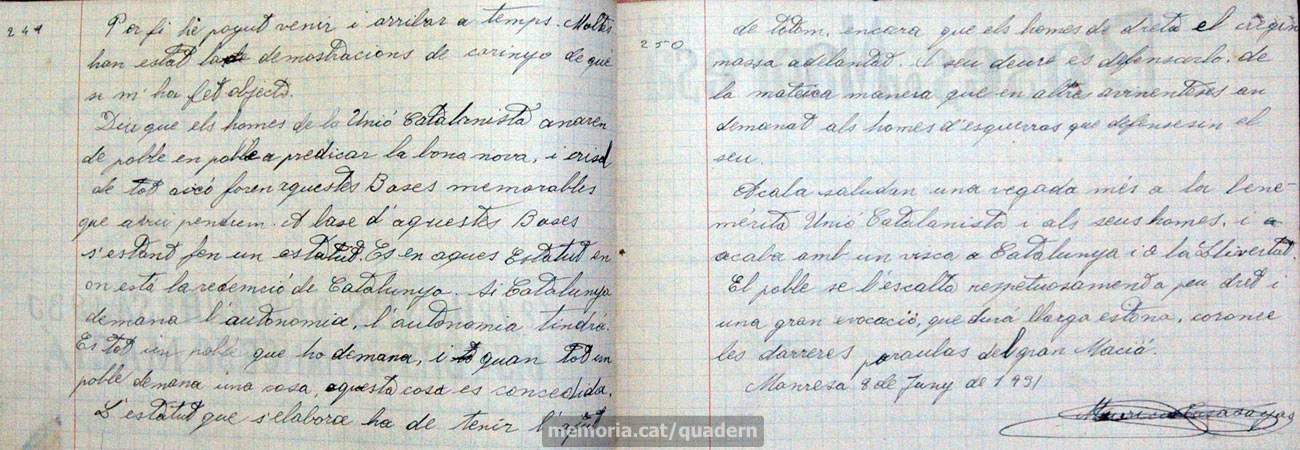 249
Per fi hè pogut venir i arribar a temps. Moltes
han estat les demostracions de carinyo de què
se m'ha fet objecte.
Diu que els homes de la Unió Catalanista anaren
de poble en poble a predicar la bona nova, i
de tot aixó foren aquestes Bases memorables
que avui pendrem. A base d'aquestes Bases
s'estant fen un estatut. Es en aques Estatut en
on està la redemció de Catalunya. Si Catalunya
demana l'autonomia, l'autonomia tindrà.
Es tot un poble que ho demana, i quan tot un
poble demana una cosa, aquesta cosa es concedida.
L'estatut que s'elabora ha de tenir l'ajut
250
de totom, encara que els homes de dreta el cregin
massa adelantat. A seu deure es defensarlo, de
la mateixa manera que en altres avinenteses an
demanat als homes d'esquerras que defensesin el
seu.
Acaba saludan una vegada més a la bene-
mérita Unió Catalanista i als seus homes, i
acaba amb un visca a Catalunya i a la Llivertat.
El poble se l'escolta respetuosament a peu dret i
una gran evocació, que durá llarga estona, corone
les darreres paraulas del gran Macià.
Manresa 8 de Juny de 1931
memoria.cat/quadern